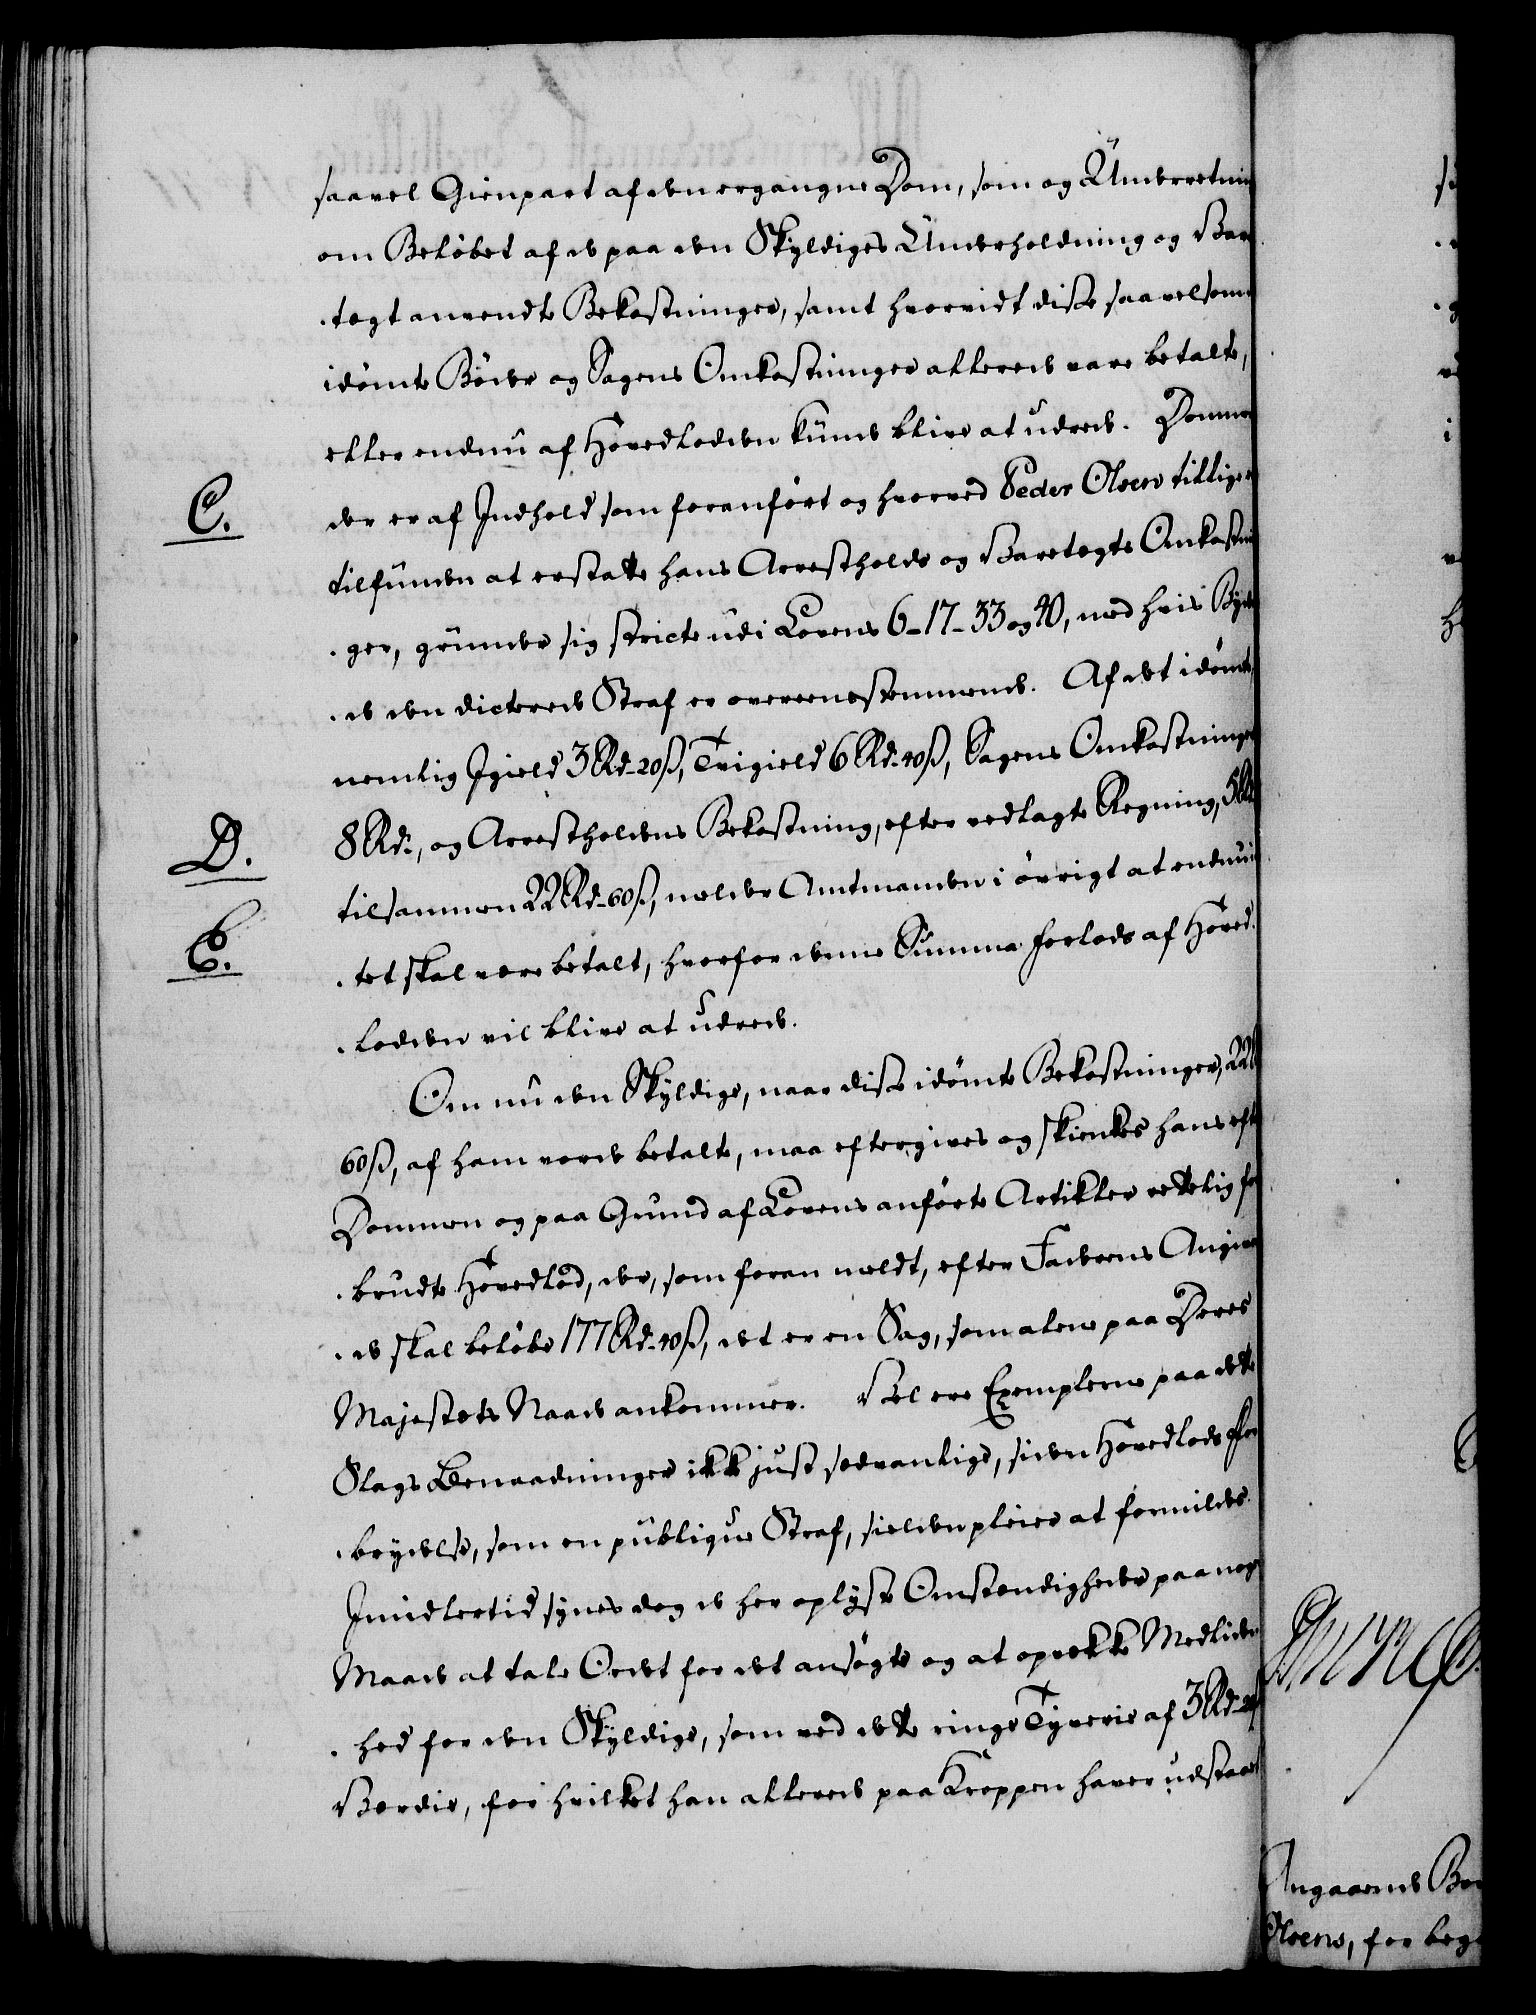 saavel Gienpart af den ergangne Dom, som og Underretnin
om Beløbet af de paa den Skyldiges Underholdning og Vare
-tægt anvendte Bekostninger, samt hvorvidt disse saavelsom
idømte Bøder og Sagens Omkostninger allerede vare betalte,
eller endnu af Hovedlodden kunde blive at udrede. Dommen
C.
der er af Indhold som foranført og hvorved Peder Olsen tillige
tilfunden at erstatte hans Arrestholds og Varetægts Omkostni
-ger, grunder sig stricte udi Lovens 6-17-33 og 40, med hvis Byden
-de den dicterede Straf er overeensstemmende. Af det idømte,
nemlig Igield 3 Rd. 20 ß, Tvigield 6 Rd. 40 ß, Sagens Omkostninger
D.
8 Rd., og Arrestholdens Bekostning, efter vedlagte Regning, 5 Rd
tilsammen 22 Rd. 60 ß, melder Amtmanden i øvrigt at endnu in
E.
-tet skal være betalt, hvorfor denne Summa forlods af Hoved-
-lodden vil blive at udrede.
Om nu den Skyldige, naar disse idømte Bekostninger, 22
60 ß, af ham vorde betalte, maa eftergives og skienkes hans eft
Dommen og paa Grund af Lovens anførte Artikler rettelig for
-brudte Hovedlod, der, som foran meldt, efter Faderens Angiven
-de skal beløbe 177 Rd. 40 ß, det er en Sag, som alene paa Deres
Majestæts Naade ankommer. Vel ere Exemplerne paa dette
Slags Benaadninger ikke just sædvanlige, siden Hovedlods For
-brydelse, som en publique Straf, sielden pleier at formildes.
Imidlertid synes dog de her oplyste Omstændigheder paa nogen
Maade at tale Ordet for det ansøgte og at opvække Medliden
-hed for den Skyldige, som ved dette ringe Tyverie af 3 Rd. 20 ß
Værdie, for hvilket han allerede paa Kroppen haver udstaaet
Angaaende
Olsens, for begt